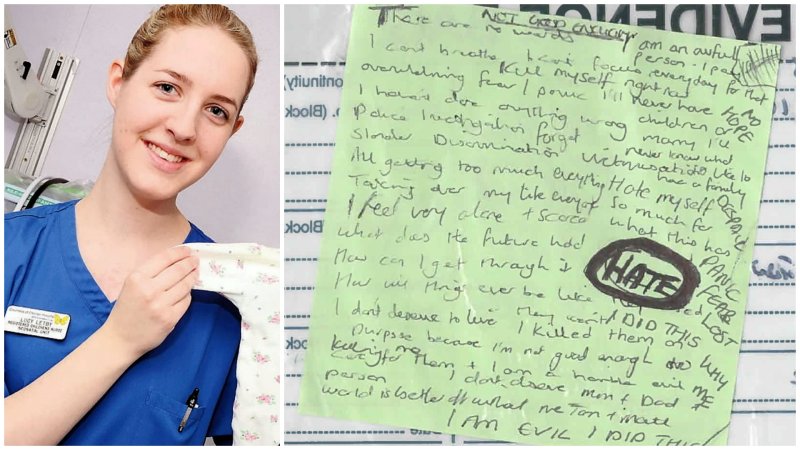 LUCY LETBY
REGISTERED CHILDREN'S NURSE
NEONATAL UNIT
EVIDENCE
ontinuity)
(Block
(Block
(Block
NOT GOOD ENOUGH
There are no words
I am an awful
person. I pay
I can't breathe I can't focus everyday for that
Kill myself right now
overwhelming fear / panic I'll never have
NO
HOPE
I haven't done anything wrong
children or
marry I'll
Police investigation forget
never know what
Slander Discrimination Victimisation
like to
had a family
All getting too much everything
Hate myself
DESPAIR
Taking over my life everyone
So much for
I feel very alone + scared
what this has
What does the future hold
PANIC
How can I get through it
HATE
FEAR
How will things ever be like
LOST
I DID THIS
I don't deserve to live
I killed them on
WHY
purpose because I'm not good enough to
ME
care for them + I am a horrible evil
Killing me
person I don't deserve mum + Dad
world is better off without me
I AM EVIL I DID THIS